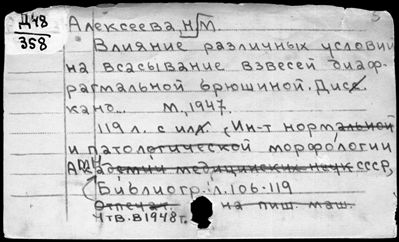 Д48
358
5
Алексеева, Н М
Влияние различных условий
на всасывание взвесей диаф-
рагмальной брюшиной. Дис.
канд... М., 1947.
119 л. с ил. (Ин-т нормальной
и патологической морфологии
АМН Академии медицинских наук СССР)
Библиогр.: л. 106-119
Отпечат. на пиш. маш.
Утв. в 1948г.